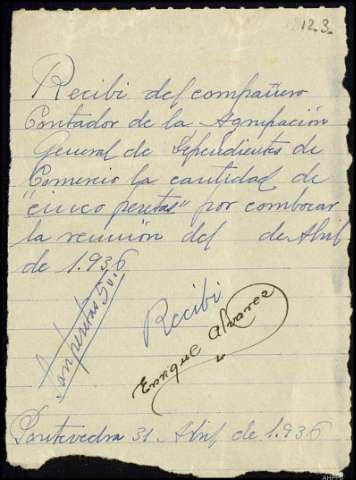 123.
Recibi del compañero
Contador de la Agrupación
General de Dependientes de
Comercio la cantidad de
"cinco pesetas" por combocar
la reunión del de Abril
de 1.936
Son pesetas 5
Recibi
Enrique Alvarez
Pontevedra 31 Abril de 1.936
AHPPO